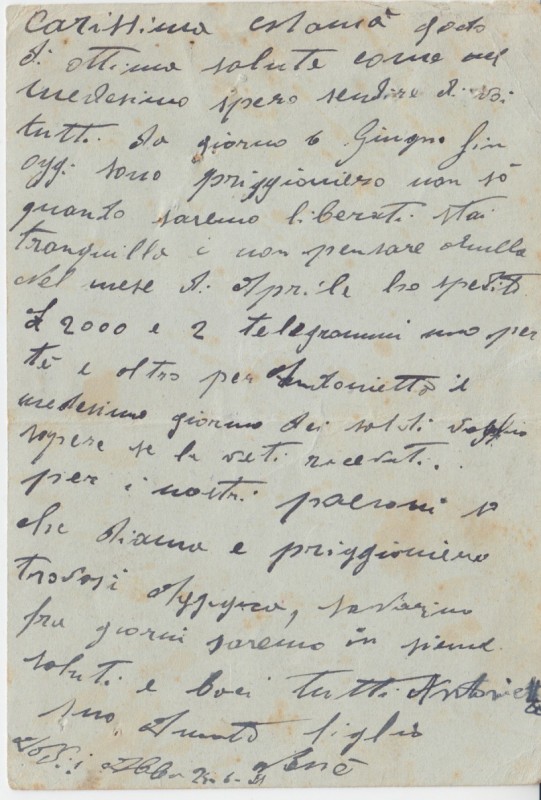 Carissima
di ottima salute come nel
medesimo spero sendire di voi
tutti. da giorno 6 Giugno fin
oggi sono priggioniero non sò
quanto saremo liberati stai
tranquilla i non pensare
nel mese di Aprile ho spedito
£ 2000 e 2 telegrammi uno per
te e oltro per Antonietta il
medesimo giorno dei saluti voglio
sapere se le veti recevuti.
per i nostri paesani so
che e priggioniero
trovasi
fra giorni saremo in sieme
saluti e baci tutti Antoniet
suo figlio